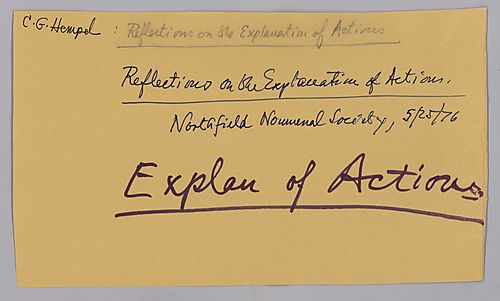 C. G. Hempel : Reflections on the Explanation of Actions
Reflections on the Explanation of Actions.
Northfield Noumenal Society, 5/25/76
Explan of Actions